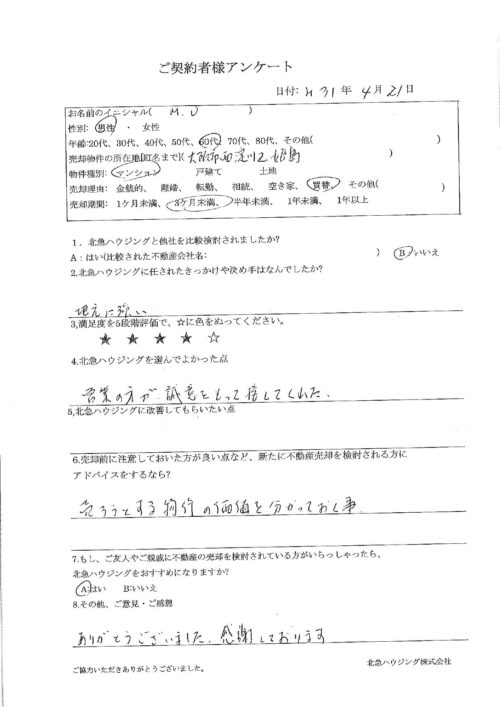 ご契約者様アンケート
日付: H31年 4月 21日
お名前のイニシャル( M. U )
性別: 男性 ・ 女性
年齢:20代、30代、40代、50代、60代、70代、80代、その他( )
売却物件の所在地[町名まで](大阪市西淀川区姫島 )
物件種別: マンション 戸建て 土地
売却理由: 金銭的、 離婚、 転勤、 相続、 空き家、 買替、 その他( )
売却期間: 1ケ月未満、 3ケ月未満、 半年未満、 1年未満、 1年以上
1．北急ハウジングと他社を比較検討されましたか?
A：はい(比較された不動産会社名: ) B：いいえ
2.北急ハウジングに任されたきっかけや決め手はなんでしたか?
地元に強い
3,満足度を5段階評価で、☆に色をぬってください。
★ ★ ★ ★ ☆
4.北急ハウジングを選んでよかった点
営業の方が誠意をもって接してくれた.
5,北急ハウジングに改善してもらいたい点
6.売却前に注意しておいた方が良い点など、新たに不動産売却を検討される方に
アドバイスをするなら?
売ろうとする物件の価値を分かっておく事.
7.もし、ご友人やご親戚に不動産の売却を検討されている方がいらっしゃったら、
北急ハウジングをおすすめになりますか?
A:はい B:いいえ
8.その他、ご意見・ご感想
ありがとうございました、感謝しております
ご協力いただきありがとうございました。 北急ハウジング株式会社